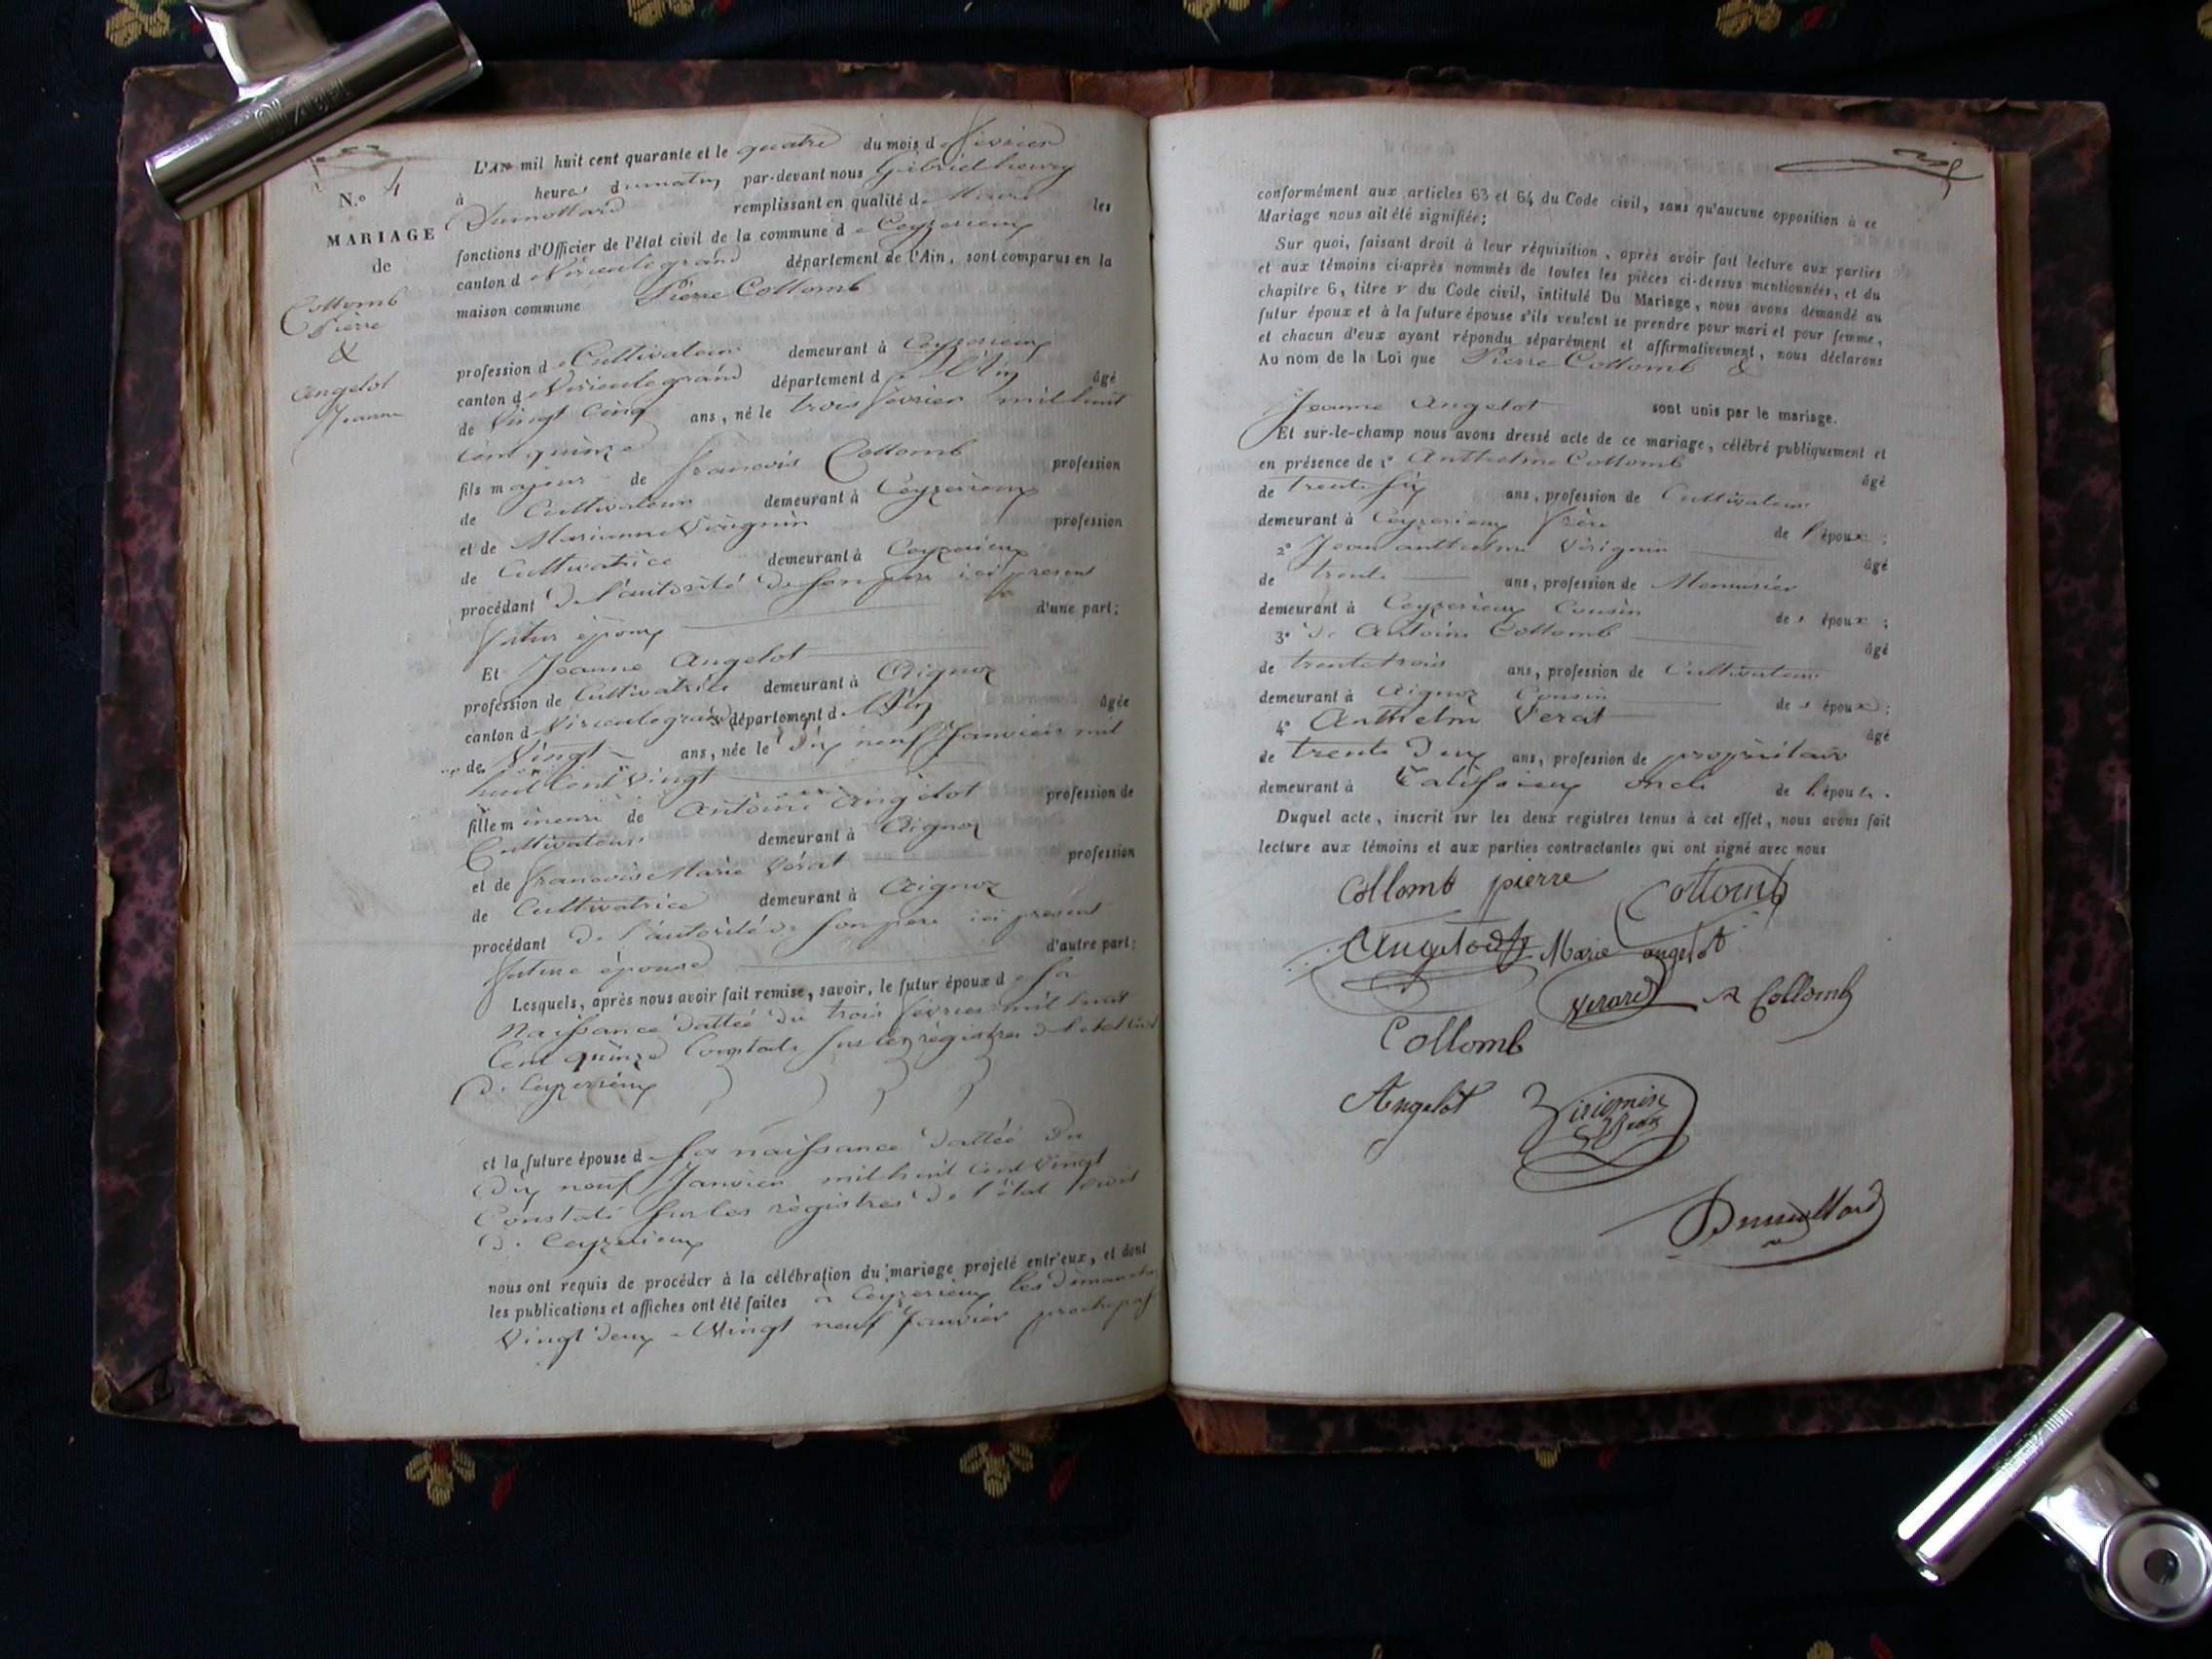 N.o 4
MARIAGE
de
Collomb
Pierre
&
Angelot
Jeanne
L'AN mil huit cent quarante et le quatre du mois de février
à heures du matin par-devant nous Gabriel henry
Dumollard remplissant en qualité de Maire les
fonctions d'Officier de l'état civil de la commune de Ceyzerieux
canton de Virieulegrand département de l'Ain, sont comparus en la
maison commune Pierre Collomb
profession de Cultivateur demeurant à Ceyzerieux
canton de Virieulegrand département de l'Ain âgé
de Vingt cinq ans, né le trois février mil huit
Cent quinze
fils majeur de francois Collomb profession
de Cultivateur demeurant à Ceyzerieux
et de Marianne profession
de Cultivatrice demeurant à Ceyzerieux
procédant de l'autorité de son pere ici present
futur époux d'une part;
Et Jeanne Angelot
profession de Cultivatrice demeurant à Aignoz
canton de Virieulegrand département de l'Ain âgée
de Vingt ans, née le dix neuf Janvier mil
huit Cent Vingt
fille mineure de Antoine Angelot profession de
Cultivateur demeurant à Aignoz
et de francoise Marie Verat profession
de Cultivatrice demeurant à Aignoz
procédant de l'autorité de son pere ici present
future épouse d'autre part;
Lesquels, après nous avoir fait remise, savoir, le futur époux de sa
Naissance dattée du trois février mil huit
Cent quinze Constatée sur les régistres de l'etat civil
de Ceyzerieux
et la future épouse de sa naissance dattée du
dix neuf Janvier mil huit Cent Vingt
Constaté sur les règistres de l'état civil
de Ceyzerieux
nous ont requis de procéder à la célébration du mariage projeté entr'eux, et dont
les publications et affiches ont été faites à Ceyzerieux les dimanches
Vingt deux & Vingt neuf Janvier
conformément aux articles 63 et 64 du Code civil, sans qu'aucune opposition à ce
Mariage nous ait été signifiée;
Sur quoi, faisant droit à leur réquisition, après avoir fait lecture aux parties
et aux témoins ci-après nommés de toutes les pièces ci-dessus mentionnées, et du
chapitre 6, titre v du Code civil, intitulé Du Mariage, nous avons demandé au
futur époux et à la future épouse s'ils veulent se prendre pour mari et pour femme,
et chacun d'eux ayant répondu séparément et affirmativement, nous déclarons
Au nom de la Loi que Pierre Collomb &
Jeanne Angelot sont unis par le mariage.
Et sur-le-champ nous avons dressé acte de ce mariage, célébré publiquement et
en présence de 1o Anthelme Collomb âgé
de trente six ans, profession de Cultivateur
demeurant à Ceyzerieux frère de l'époux;
2o Jean anthelme Virignin âgé
de trente ans, profession de Menuisier
demeurant à Ceyzerieux Cousin des époux;
3o de Antoine Collomb âgé
de trentetrois ans, profession de Cultivateur
demeurant à Aignoz Cousin des époux;
4o Anthelme Verat âgé
de trente deux ans, profession de propriétaire
demeurant à Talissieux oncle de l'épouse.
Duquel acte, inscrit sur les deux registres tenus à cet effet, nous avons fait
lecture aux témoins et aux parties contractantes qui ont signé avec nous
Collomb pierre Collomb
Angelot Marie angelot
Verard A Collomb
Collomb
Angelot
Dumollard